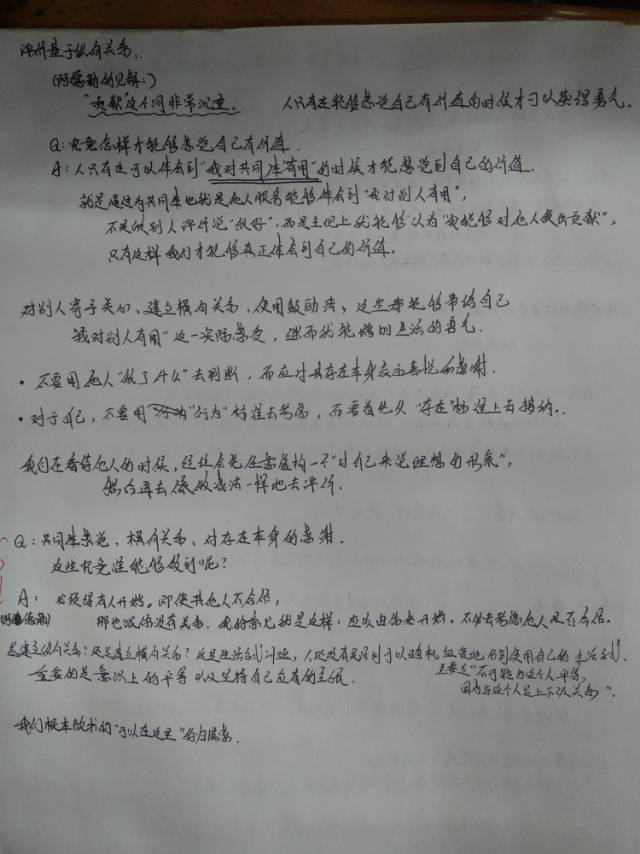 评价基于纵向关系。
(阿德勒的见解:)
"贡献"这个词非常沉重. 人只有在能够感觉自己有价值的时候才可以获得勇气.
Q:究竟怎样才能够感觉自己有价值.
A:人只有在可以体会到"我对共同体有用"的时候才能感觉到自己的价值.
就是通过为共同体也就是他人服务能够体会到"我对别人有用",
不是被别人评价说"很好",而是主观上就能够认为"我能够对他人做出贡献",
只有这样我们才能够真正体会到自己的价值.
对别人寄予关心、建立横向关系、使用鼓励法,这些都能够带给自己
"我对别人有用"这一实际感受,进而就能增加生活的勇气.
· 不要用他人"做了什么"去判断,而应对其存在本身表示喜悦和感谢.
· 对于自己,不要用"行为"标准去考虑,而要首先从"存在"标准上去接纳.
我们在看待他人的时候,往往会先任意虚构一个"对自己来说理想的形象",
然后再去像做减法一样地去评价.
Q:共同体感觉、横向关系、对存在本身的感谢.
这些究竟谁能够做到呢?
A: 必须得有人开始。即使其他人不合作,
(阿德勒) 那也跟你没有关系. 我的意见就是这样:应该由你来开始。不必去考虑他人是否合作.
是建立纵向关系?还是建立横向关系?这是生活方式问题,人还没有灵活到可以随机应变地分别使用自己的生活方式.
主要是"不可能与这个人平等,
重要的是意识上的平等以及坚持自己应有的主张.
因为与这个人是上下级关系".
"可以在这里"的归属感.